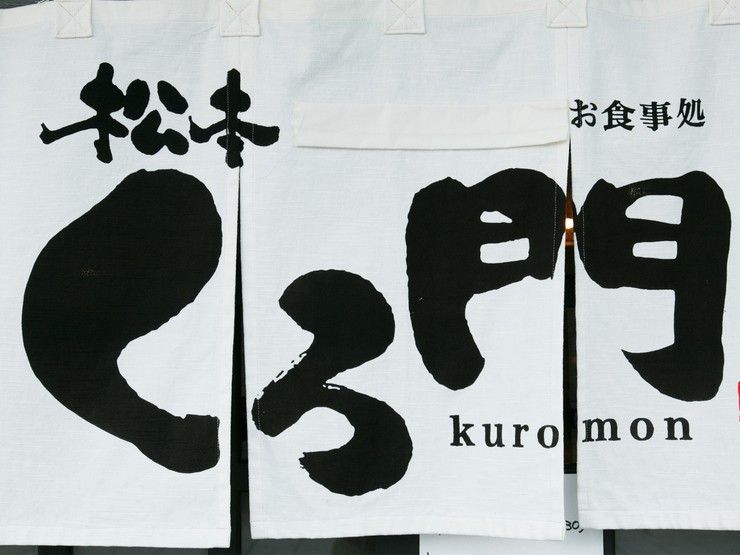 松本
お食事処
くろ門
kuromon